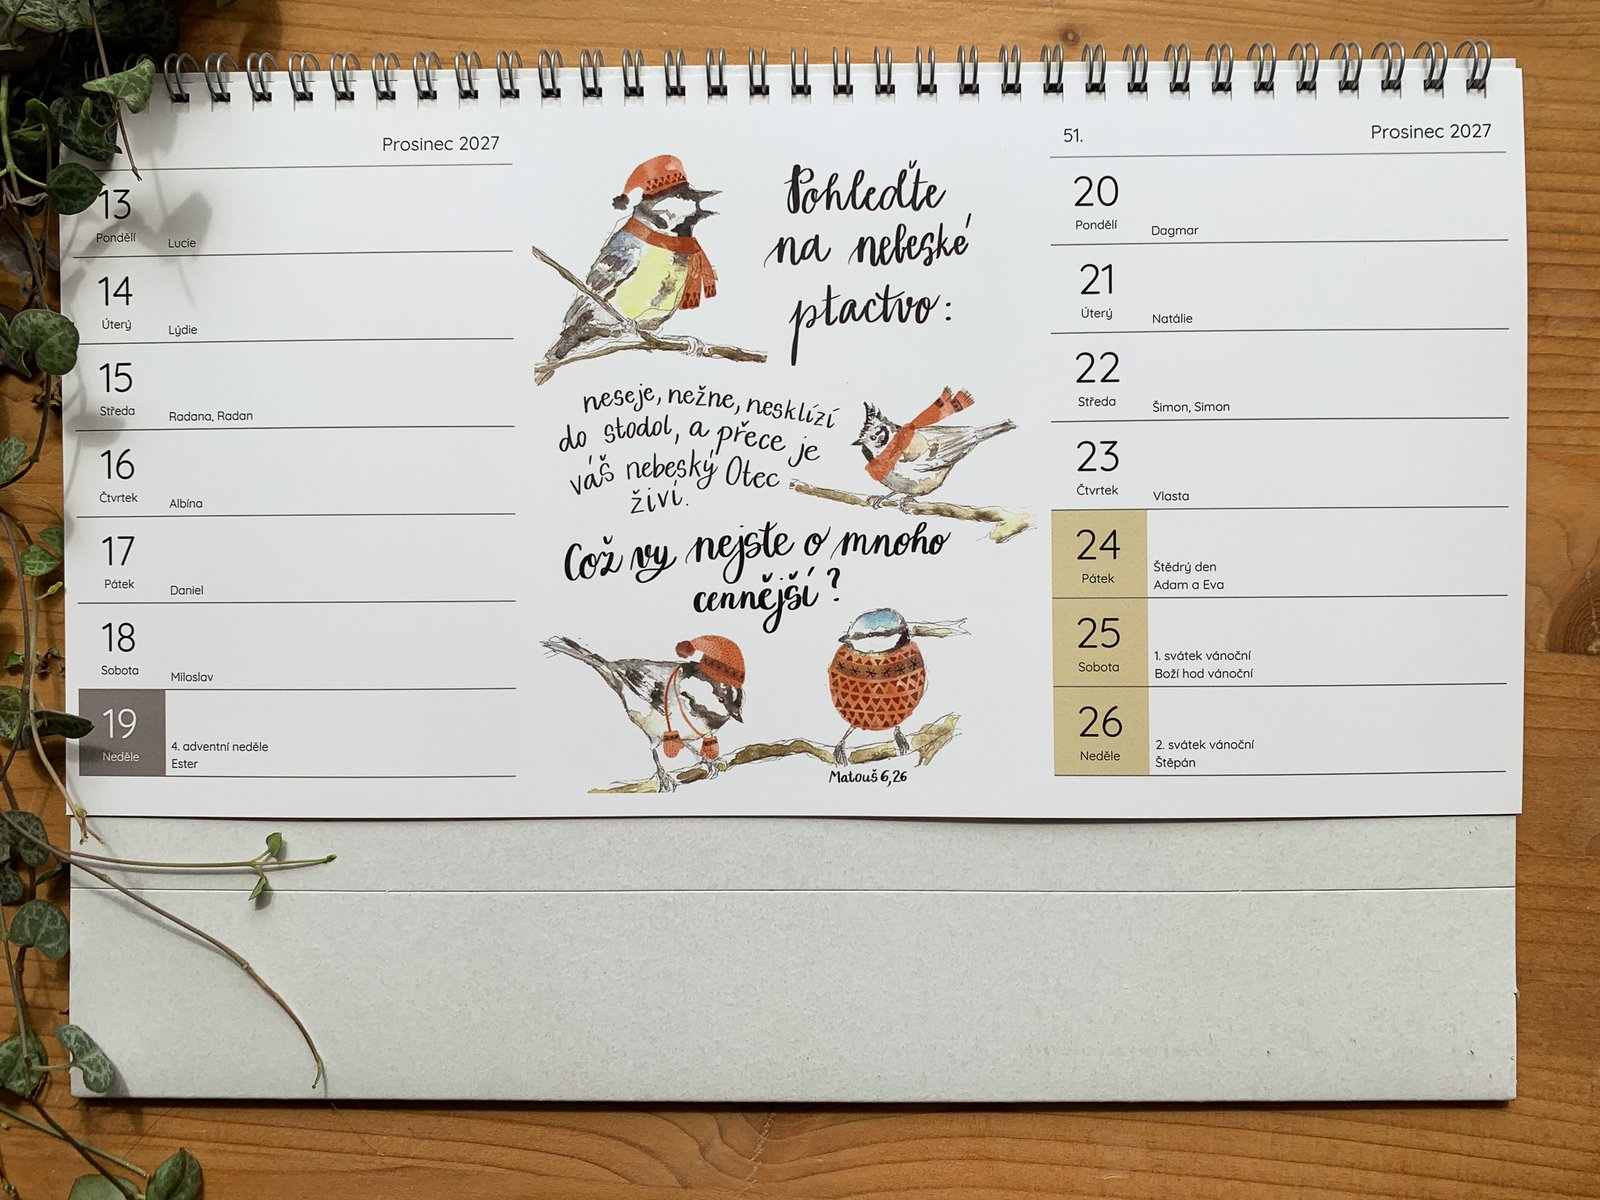 Prosinec 2027
13
Pondělí
Lucie
14
Úterý
Lýdie
15
Středa
Radana, Radan
16
Čtvrtek
Albína
17
Pátek
Daniel
18
Sobota
Miloslav
19
Neděle
4. adventní neděle
Ester
Pohleďte
na nebeské
ptactvo:
neseje, nežne, nesklízí
do stodol, a přece je
váš nebeský Otec
živí.
Což vy nejste o mnoho
cennější?
Matouš 6,26
51.
Prosinec 2027
20
Pondělí
Dagmar
21
Úterý
Natálie
22
Středa
Šimon, Simon
23
Čtvrtek
Vlasta
24
Pátek
Štědrý den
Adam a Eva
25
Sobota
1. svátek vánoční
Boží hod vánoční
26
Neděle
2. svátek vánoční
Štěpán